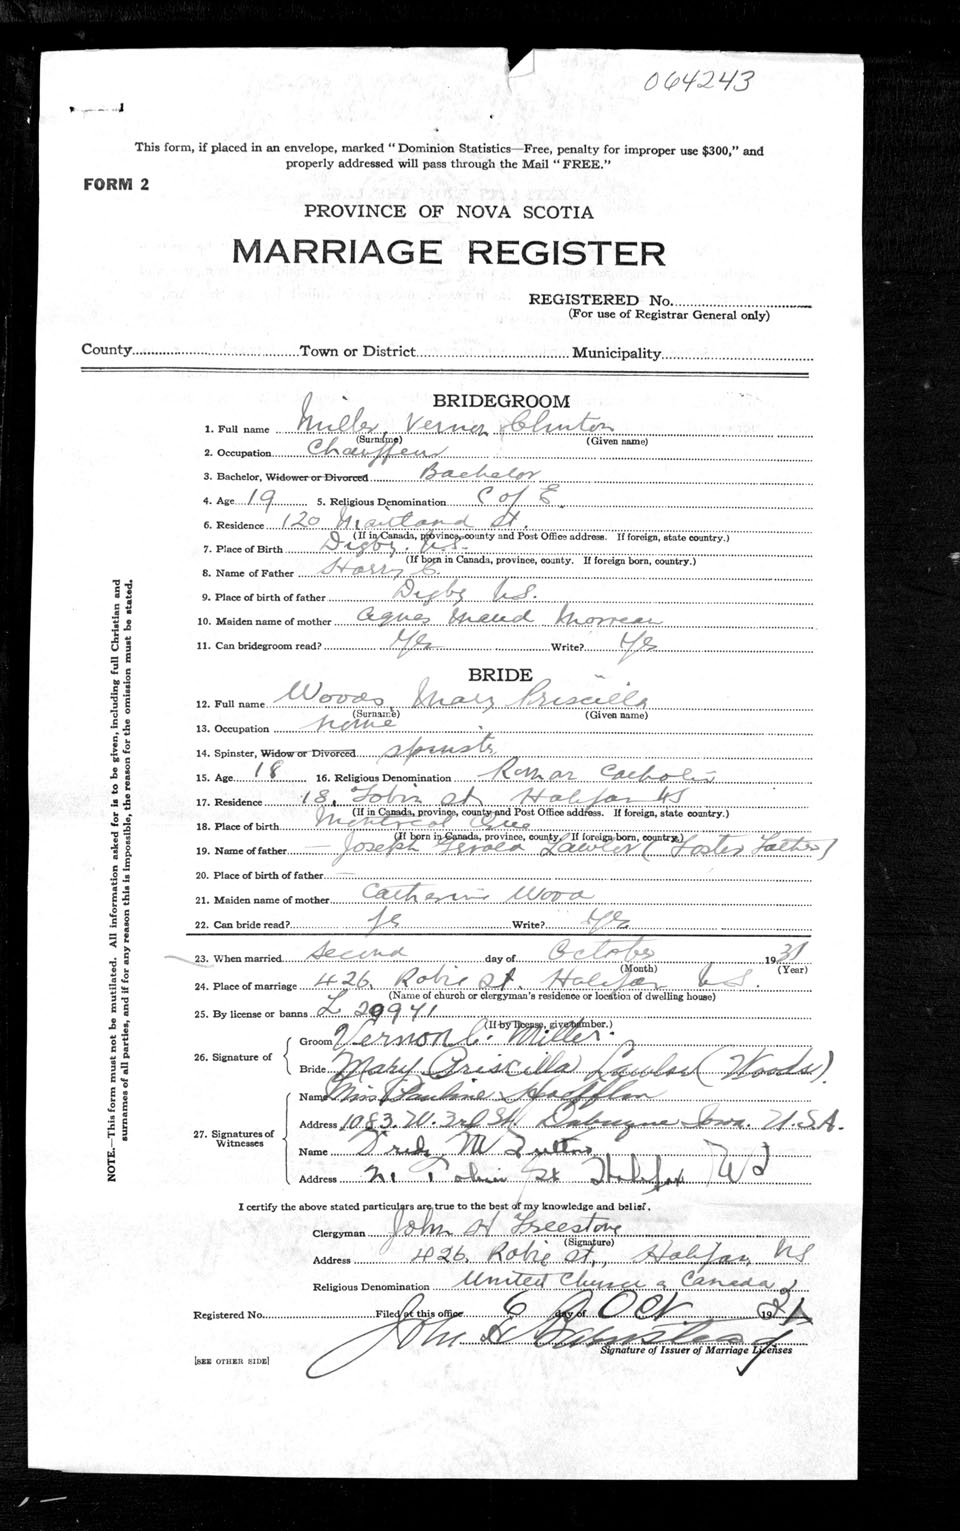 064243
This form, if placed in an envelope, marked "Dominion Statistics—Free, penalty for improper use $300," and
properly addressed will pass through the Mail "FREE."
FORM 2
PROVINCE OF NOVA SCOTIA
MARRIAGE REGISTER
REGISTERED No.
(For use of Registrar General only)
County Town or District Municipality
BRIDEGROOM
1. Full name Miller, Vernon Clinton
(Surname) (Given name)
2. Occupation Chauffeur
3. Bachelor, Widower or Divorced Bachelor
4. Age 19 5. Religious Denomination C of E.
6. Residence 120 Maitland St.
(If in Canada, province, county and Post Office address. If foreign, state country.)
7. Place of Birth Digby, N.S.
(If born in Canada, province, county. If foreign born, country.)
8. Name of Father Harry C.
9. Place of birth of father Digby N.S.
10. Maiden name of mother Agnes Maud Morreau
11. Can bridegroom read? Yes Write? Yes
BRIDE
12. Full name Woods, Mary Priscilla
(Surname) (Given name)
13. Occupation None
14. Spinster, Widow or Divorced Spinster
15. Age 18 16. Religious Denomination Roman Catholic
17. Residence 18, Tobin St Halifax NS
(If in Canada, province, county and Post Office address. If foreign, state country.)
18. Place of birth Montreal Que
(If born in Canada, province, county. If foreign born, country.)
19. Name of father — Joseph Gerald Lawlor (Foster Father)
20. Place of birth of father —
21. Maiden name of mother Catherine Wood
22. Can bride read? Yes Write? Yes
23. When married second day of October 1931
(Month) (Year)
24. Place of marriage 426, Robie St. Halifax N.S.
(Name of church or clergyman's residence or location of dwelling house)
25. By license or banns L 29941
(If by license, give number.)
26. Signature of Groom Vernon C. Miller.
Bride Mary Priscilla Lawlor (Woods).
27. Signatures of Witnesses Name Miss Pauline
Address 1083. W. 3rd St. Dubuque Iowa. U.S.A.
Name Fred. M
Address Tobin St Halifax NS
I certify the above stated particulars are true to the best of my knowledge and belief.
Clergyman John H Freestone
(Signature)
Address 426, Robie St., Halifax, NS
Religious Denomination United Church of Canada
Registered No. Filed at this office 6 day of Oct 1931
John H
Signature of Issuer of Marriage Licenses
[SEE OTHER SIDE]
NOTE.—This form must not be mutilated. All information asked for is to be given, including full Christian and
surnames of all parties, and if for any reason this is impossible, the reason for the omission must be stated.